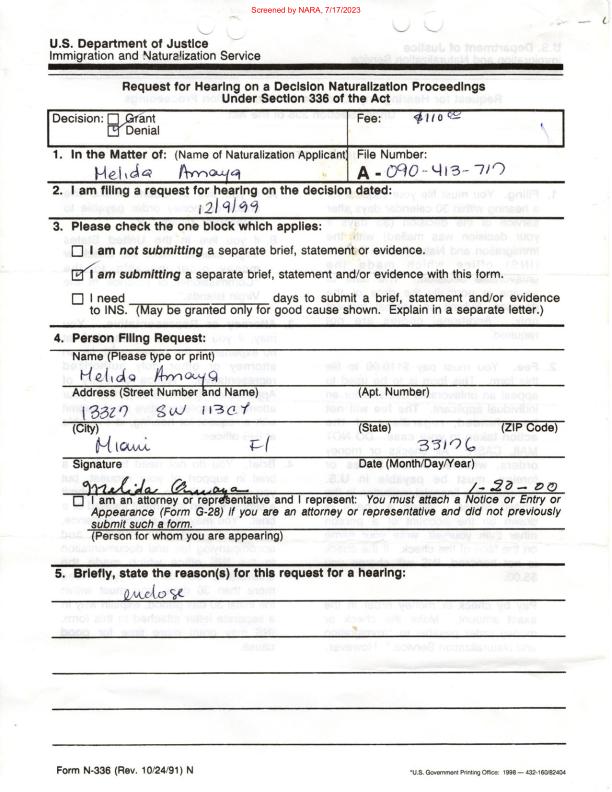 Screened by NARA, 7/17/2023
U.S. Department of Justice
Immigration and Naturalization Service
Request for Hearing on a Decision Naturalization Proceedings
Under Section 336 of the Act
Decision: Grant
Denial
Fee: $110.00
1. In the Matter of: (Name of Naturalization Applicant)
Melida Amaya
File Number:
A - 090-413-717
2. I am filing a request for hearing on the decision dated:
12/9/99
3. Please check the one block which applies:
I am not submitting a separate brief, statement or evidence.
I am submitting a separate brief, statement and/or evidence with this form.
I need ____________ days to submit a brief, statement and/or evidence
to INS. (May be granted only for good cause shown. Explain in a separate letter.)
4. Person Filing Request:
Name (Please type or print)
Melida Amaya
Address (Street Number and Name) (Apt. Number)
13327 SW 113 CT
(City) (State) (ZIP Code)
Miami Fl 33176
Signature Date (Month/Day/Year)
Melida Amaya 1-20-00
I am an attorney or representative and I represent: You must attach a Notice or Entry or
Appearance (Form G-28) if you are an attorney or representative and did not previously
submit such a form.
(Person for whom you are appearing)
5. Briefly, state the reason(s) for this request for a hearing:
enclose
Form N-336 (Rev. 10/24/91) N
*U.S. Government Printing Office: 1998 — 432-160/82404